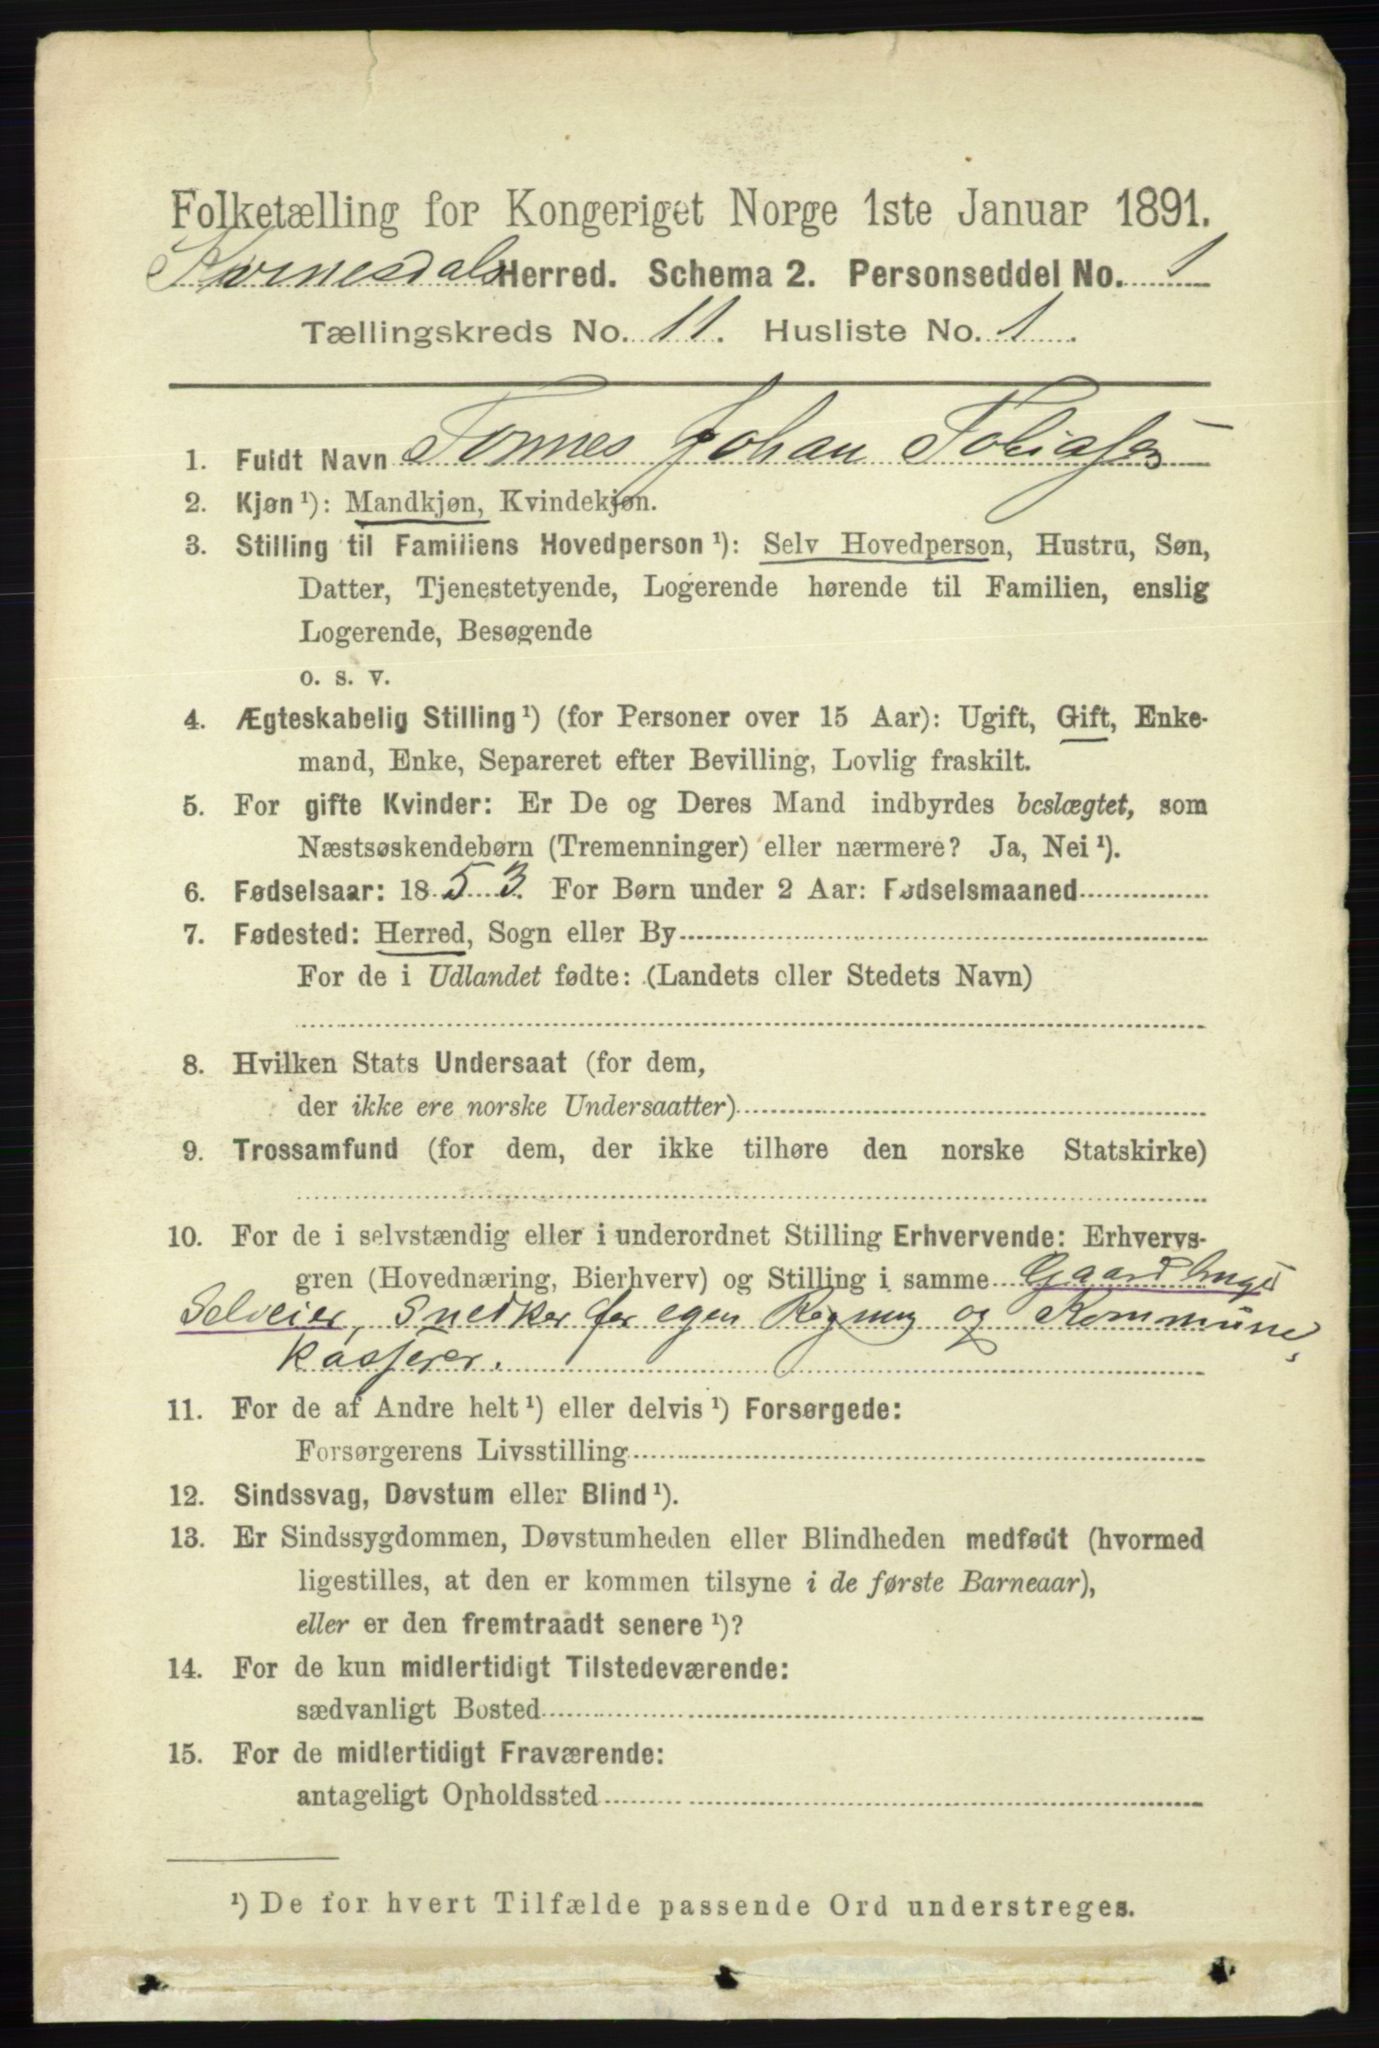 Folketælling for Kongeriget Norge 1ste Januar 1891.
Kvinesdals Herred. Schema 2. Personseddel No. 1
Tællingskreds No. 11. Husliste No. 1.
1. Fuldt Navn Tønnes Johan Tobiasen
2. Kjøn¹): Mandkjøn, Kvindekjøn.
3. Stilling til Familiens Hovedperson¹): Selv Hovedperson, Hustru, Søn,
Datter, Tjenestetyende, Logerende hørende til Familien, enslig
Logerende, Besøgende
o. s. v.
4. Ægteskabelig Stilling¹) (for Personer over 15 Aar): Ugift, Gift, Enke-
mand, Enke, Separeret efter Bevilling, Lovlig fraskilt.
5. For gifte Kvinder: Er De og Deres Mand indbyrdes beslægtet, som
Næstsøskendebørn (Tremenninger) eller nærmere? Ja, Nei¹).
6. Fødselsaar: 1853. For Børn under 2 Aar: Fødselsmaaned
7. Fødested: Herred, Sogn eller By
For de i Udlandet fødte: (Landets eller Stedets Navn)
8. Hvilken Stats Undersaat (for dem,
der ikke ere norske Undersaatter)
9. Trossamfund (for dem, der ikke tilhøre den norske Statskirke)
10. For de i selvstændig eller i underordnet Stilling Erhvervende: Erhvervs-
gren (Hovednæring, Bierhverv) og Stilling i samme Gaardbruger
Selveier, Snedker for egen Regning og Kommune,
kasserer.
11. For de af Andre helt¹) eller delvis¹) Forsørgede:
Forsørgerens Livsstilling
12. Sindssvag, Døvstum eller Blind¹).
13. Er Sindssygdommen, Døvstumheden eller Blindheden medfødt (hvormed
ligestilles, at den er kommen tilsyne i de første Barneaar),
eller er den fremtraadt senere¹)?
14. For de kun midlertidigt Tilstedeværende:
sædvanligt Bosted
15. For de midlertidigt Fraværende:
antageligt Opholdssted
¹) De for hvert Tilfælde passende Ord understreges.